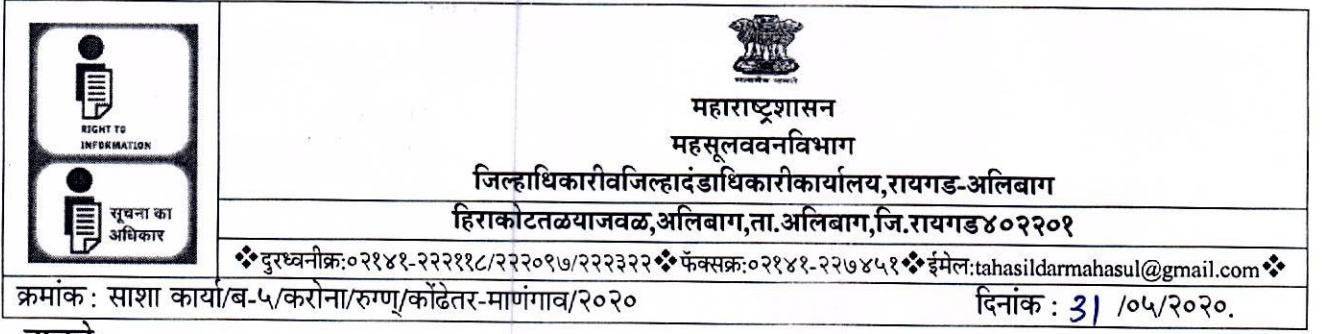 RIGHT TO
INFORMATION
सूचना का
अधिकार
महाराष्ट्रशासन
महसूलववनविभाग
जिल्हाधिकारीवजिल्हादंडाधिकारीकार्यालय,रायगड-अलिबाग
हिराकोटतळयाजवळ,अलिबाग,ता.अलिबाग,जि.रायगड४०२२०१
❖दुरध्वनीक्र:०२१४१-२२२११८/२२२०९७/२२२३२२❖फॅक्सक्र:०२१४१-२२७४५१❖ईमेल:tahasildarmahasul@gmail.com❖
क्रमांक : साशा कार्या/ब-५/करोना/रुग्ण/कोंढेतर-माणंगाव/२०२० दिनांक : 31 /०५/२०२०.